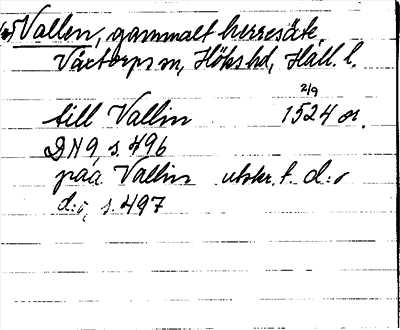 Vallen, gammalt herresäte.
Växtorps sn, Höks hd, Hall. l.
till Vallin 2/9 1524 or.
DN 9, s. 496
paa Vallin utskr. t. d:o
d:o, s. 497